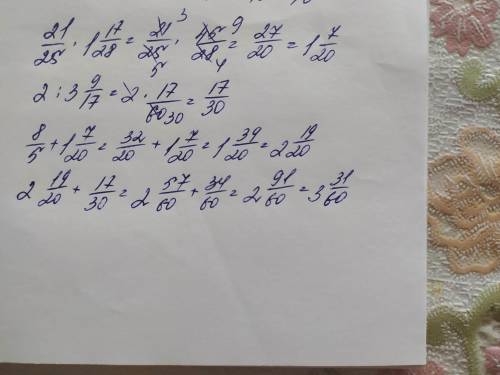 21/25 · 1 17/28 = 21/25 · 45/28 = 27/20 = 1 7/20
3 9
5 4
2 : 3 9/17 = 2 · 17/60 = 17/30
30
8/5 + 1 7/20 = 32/20 + 1 7/20 = 1 39/20 = 2 19/20
2 19/20 + 17/30 = 2 57/60 + 34/60 = 2 91/60 = 3 31/60